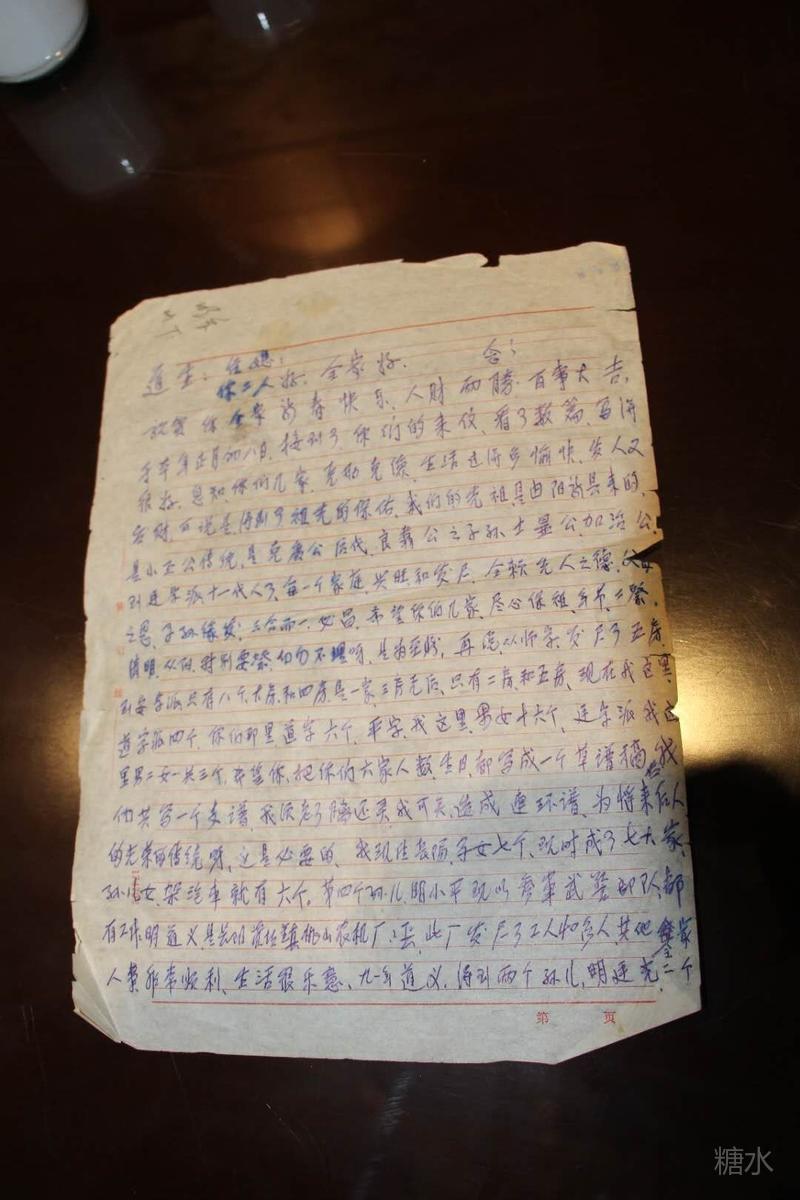 道生：侄媳：
你二人好．全家好． 念！
祝贺你全家新春快乐、人财两勝．百事大吉．
于本年正月初八日．接到了你们的来信、看了数篇、写得
很好．息知你们几家．克勤克俭．生活过得多愉快．发人又
发财．可说是得到了祖先的保佑．我们的先祖是由阳新县来的．
是小玉公传统．是克广公后代．良彝公之子孙．士显公．加治公．
到连字派十一代人了．每一个家庭．兴旺和发尸．全赖先人之德．父母
之恩．子孙缘发．三合而一．必昌．希望你们几家．尽心保祖．
清明．特别要 切勿不理呀．是为至盼．再说从师字发尸了五房．
到安字派只有八个．大房和四房是一家．三房无后．只有二房和五房．现在我这里．
道字派四个．你们那里道字六个．平字我这里．男女十六个．连字派我这
里男二女一共三个．希望你．把你们六家人数生日．都写成一个草谱稿．我
们共写一个支谱．造成连环谱．为将来后人
的光荣的传统呀．这是必要的．我现在 子女七个．现时成了七大家．
孙儿女．架汽车就有六个．第四个孙儿．明小平现以参军武警部队．都
有工作．明道义．是 农机厂 ．此厂发尸了工人 多人．其他全家
人员非常顺利、生活很乐意、九一年道义．得到两个孙儿．明连克．二个
第 页
糖水